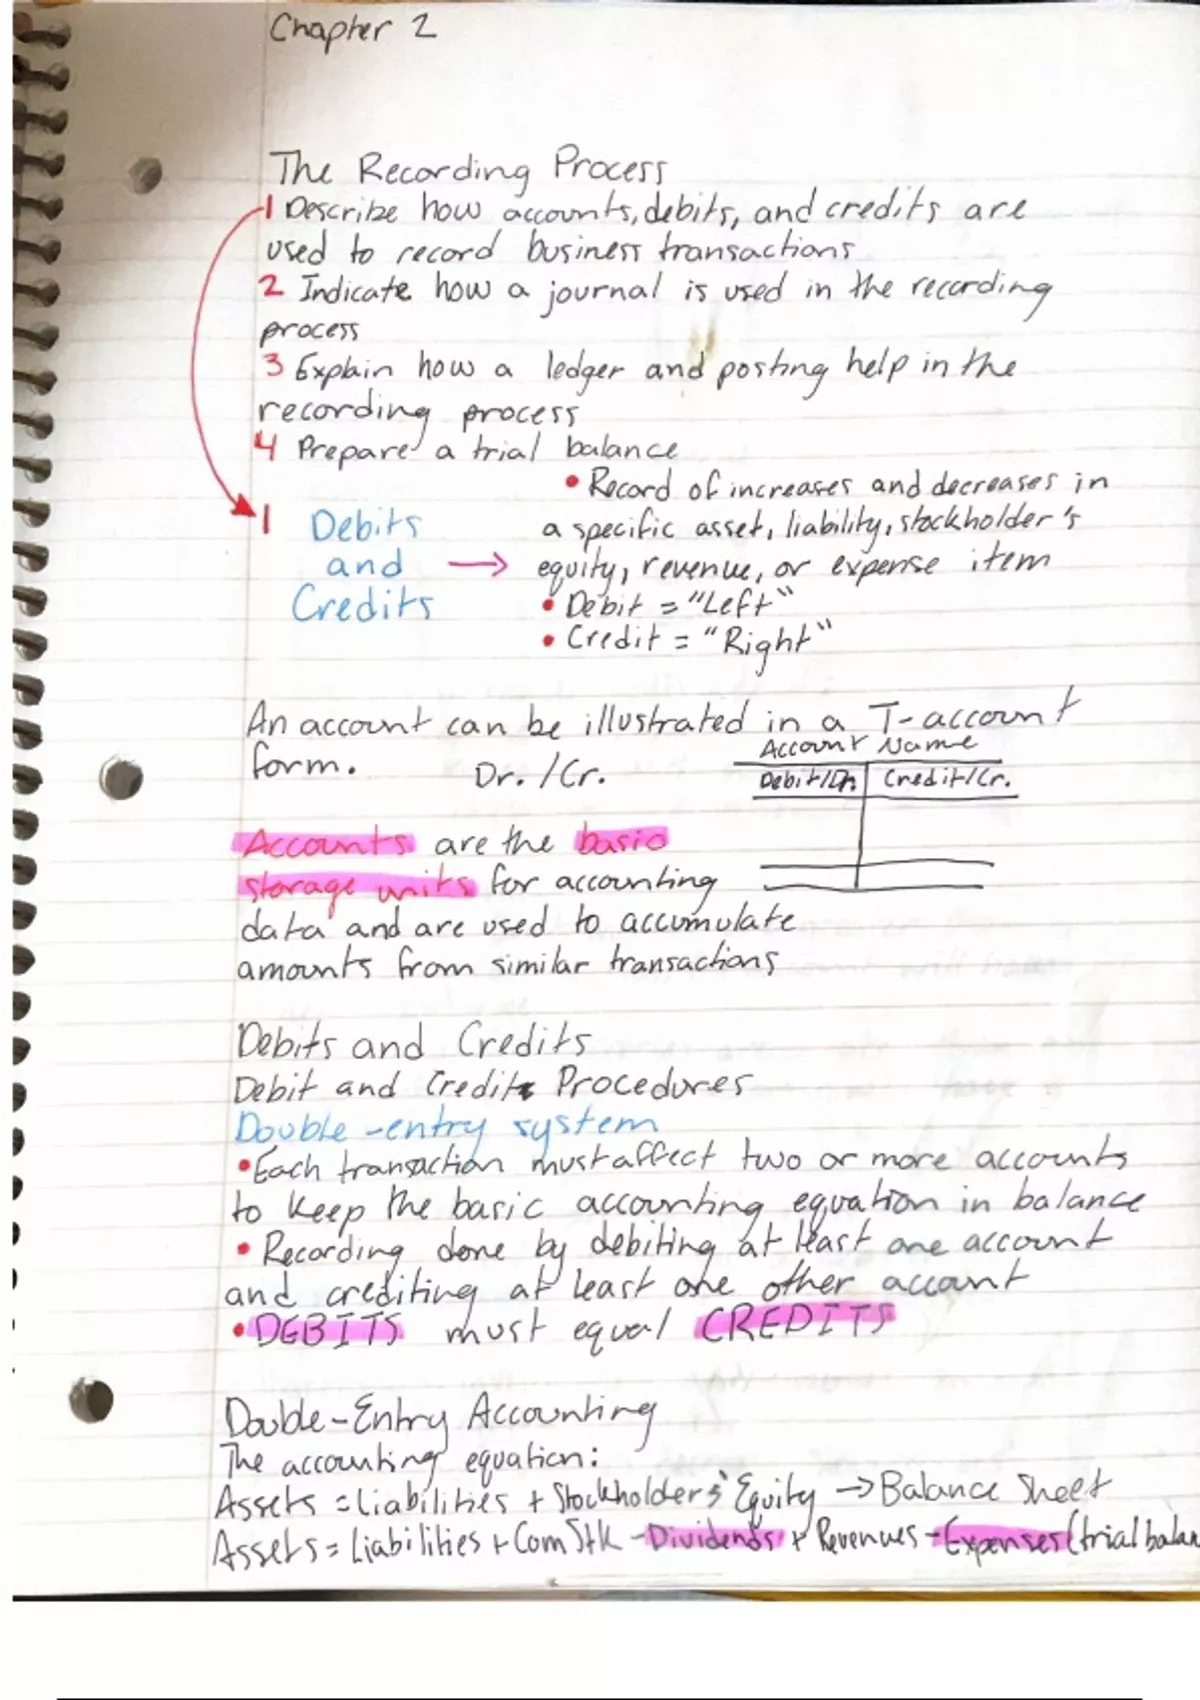 Chapter 2
The Recording Process
1 Describe how accounts, debits, and credits are
used to record business transactions
2 Indicate how a journal is used in the recording
process
3 Explain how a ledger and posting help in the
recording process
4 Prepare a trial balance
1 Debits
and
Credits
• Record of increases and decreases in
a specific asset, liability, stockholder's
equity, revenue, or expense item
• Debit = "Left"
• Credit = "Right"
An account can be illustrated in a T-account
form. Dr. / Cr.
Account Name
Debit/Dr. Credit/Cr.
Accounts are the basic
storage units for accounting
data and are used to accumulate
amounts from similar transactions
Debits and Credits
Debit and Credit Procedures
Double-entry system
• Each transaction must affect two or more accounts
to keep the basic accounting equation in balance
• Recording done by debiting at least one account
and crediting at least one other account
• DEBITS must equal CREDITS
Double-Entry Accounting
The accounting equation:
Assets = Liabilities + Stockholders' Equity → Balance Sheet
Assets = Liabilities + Com Stk - Dividends + Revenues - Expenses (trial balan